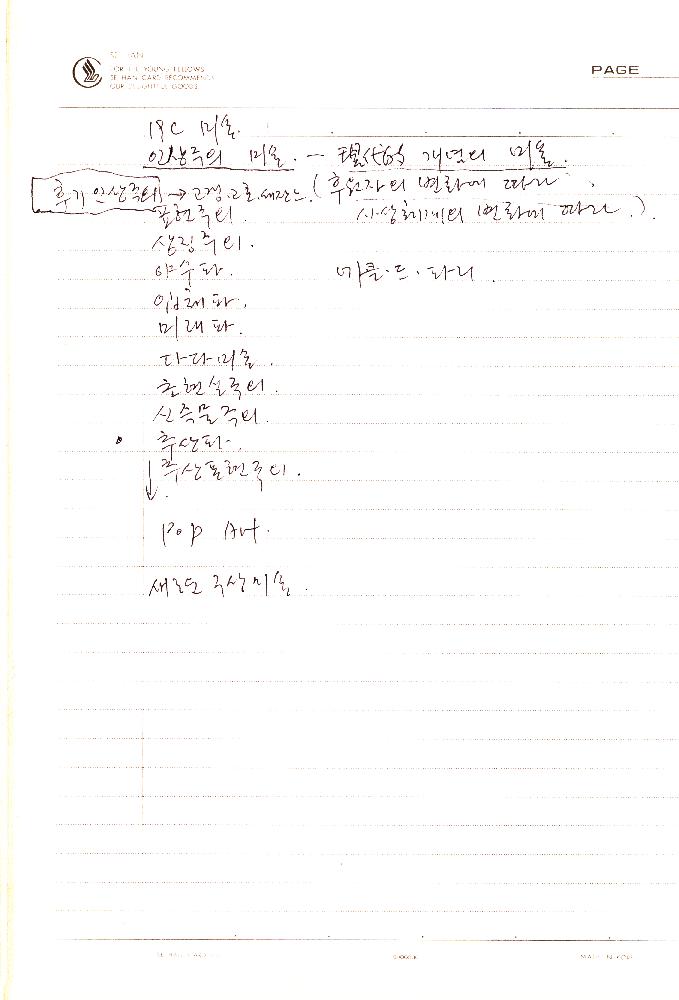 SE HAN
FOR THE YOUNG FELLOWS
SE HAN CARD RECOMMENDS
OUR DELIGHTFUL GOODS
PAGE
19C 미술.
인상주의 미술. — 현代的 개념의 미술.
후기 인상주의 → 고갱, 고흐, 세잔느. (후원자의 변화에 따라,
표현주의. 사상체계의 변화에 따라.)
상징주의.
야수파. 에콜·드·파리.
입체파.
미래파.
다다미술.
초현실주의.
신즉물주의.
추상파.
추상표현주의.
Pop Art.
새로운 구상미술.